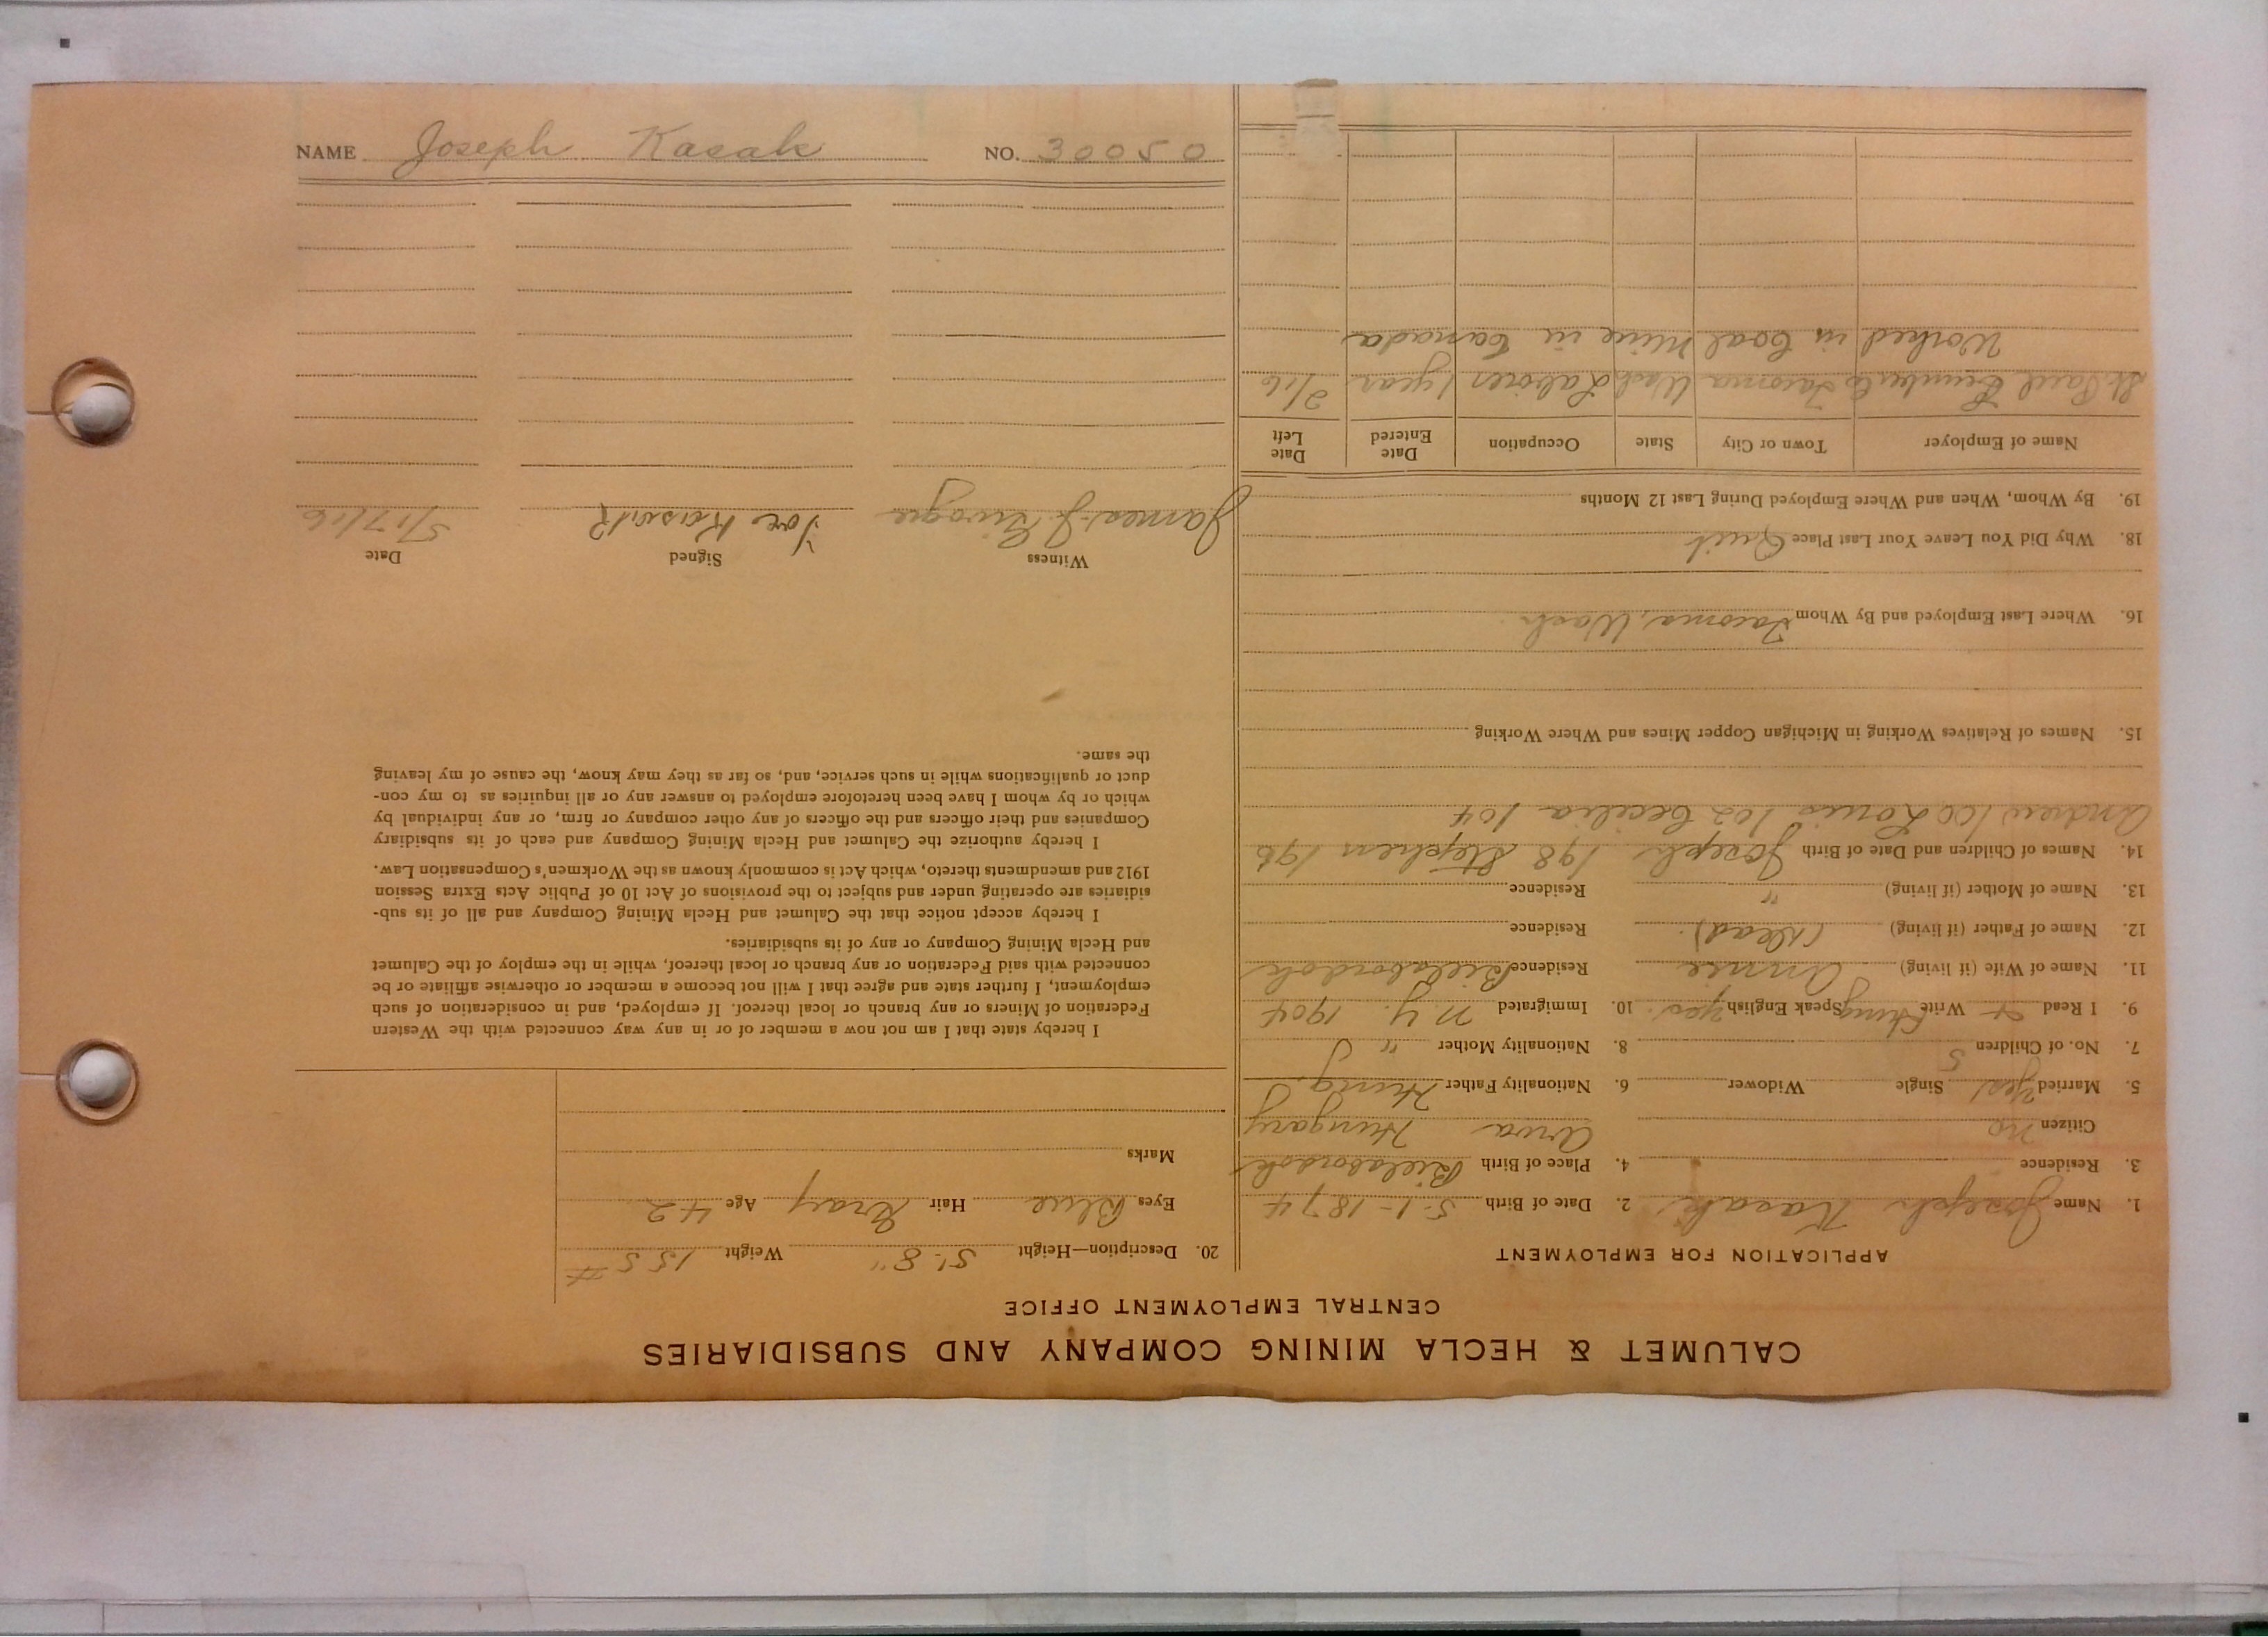 NAME Joseph Kasak NO. 30050
CALUMET & HECLA MINING COMPANY AND SUBSIDIARIES
CENTRAL EMPLOYMENT OFFICE
APPLICATION FOR EMPLOYMENT
1. Name Joseph Kasak 2. Date of Birth 5-1-1874
3. Residence 4. Place of Birth
Citizen no Arva Hungary
5. Married Yes Single Widower 6. Nationality Father Hung.
7. No. of Children 5 8. Nationality Mother "
9. I Read + Write Hung Speak English yes 10. Immigrated N.Y. 1904
11. Name of Wife (if living) Annie Residence
12. Name of Father (if living) (Dead) Residence
13. Name of Mother (if living) " Residence
14. Names of Children and Date of Birth Joseph 198 Stephen 196
Andrew 100 Louis 102 Cecilia 104
15. Names of Relatives Working in Michigan Copper Mines and Where Working
16. Where Last Employed and By Whom Tacoma, Wash.
18. Why Did You Leave Your Last Place Quit
19. By Whom, When and Where Employed During Last 12 Months
Name of Employer Town or City State Occupation Date Entered Date Left
St. Paul Tacoma Wash Laborer 1 year 2/16
Worked in Coal Mine in Canada
20. Description—Height 5'. 8" Weight 155 #
Eyes Blue Hair Gray Age 42
Marks
I hereby state that I am not now a member of or in any way connected with the Western
Federation of Miners or any branch or local thereof. If employed, and in consideration of such
employment, I further state and agree that I will not become a member or otherwise affiliate or be
connected with said Federation or any branch or local thereof, while in the employ of the Calumet
and Hecla Mining Company or any of its subsidiaries.
I hereby accept notice that the Calumet and Hecla Mining Company and all of its sub-
sidiaries are operating under and subject to the provisions of Act 10 of Public Acts Extra Session
1912 and amendments thereto, which Act is commonly known as the Workmen's Compensation Law.
I hereby authorize the Calumet and Hecla Mining Company and each of its subsidiary
Companies and their officers and the officers of any other company or firm, or any individual by
which or by whom I have been heretofore employed to answer any or all inquiries as to my con-
duct or qualifications while in such service, and, so far as they may know, the cause of my leaving
the same.
Witness Signed Date
James J. Joe 5/17/16